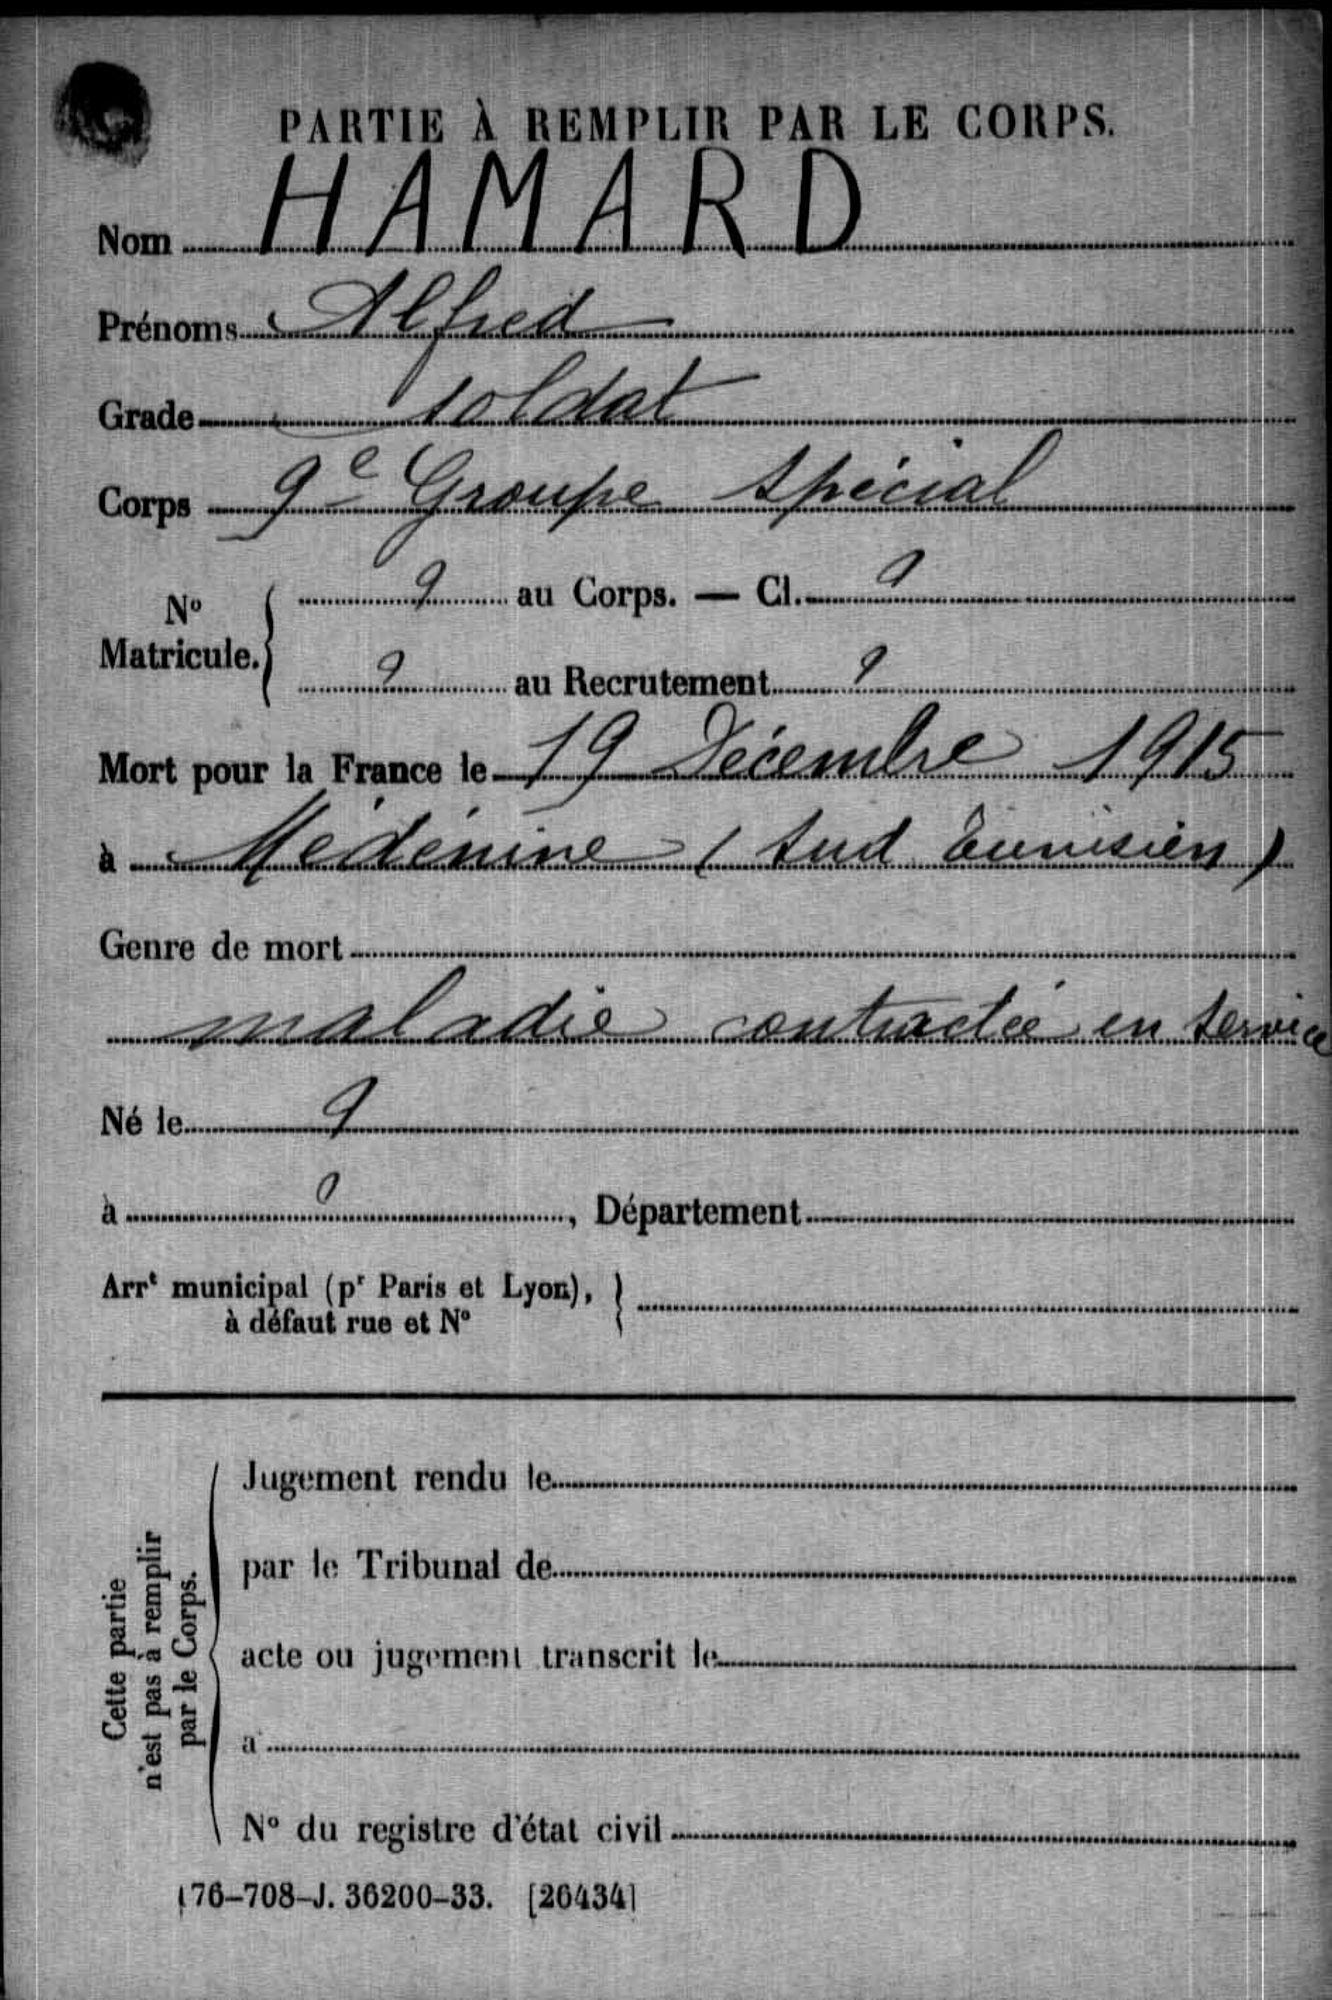 PARTIE À REMPLIR PAR LE CORPS.
Nom HAMARD
Prénoms Alfred
Grade soldat
Corps 9e Groupe spécial
N° Matricule. ? au Corps. — Cl. ?
? au Recrutement ?
Mort pour la France le 19 Décembre 1915
à Médénine (Sud Tunisien)
Genre de mort
maladie contractée en service
Né le ?
à ?, Département
Arrt municipal (pr Paris et Lyon),
à défaut rue et N°
Cette partie
n'est pas à remplir
par le Corps.
Jugement rendu le
par le Tribunal de
acte ou jugement transcrit le
à
N° du registre d'état civil
176-708-J. 36200-33. [26434]